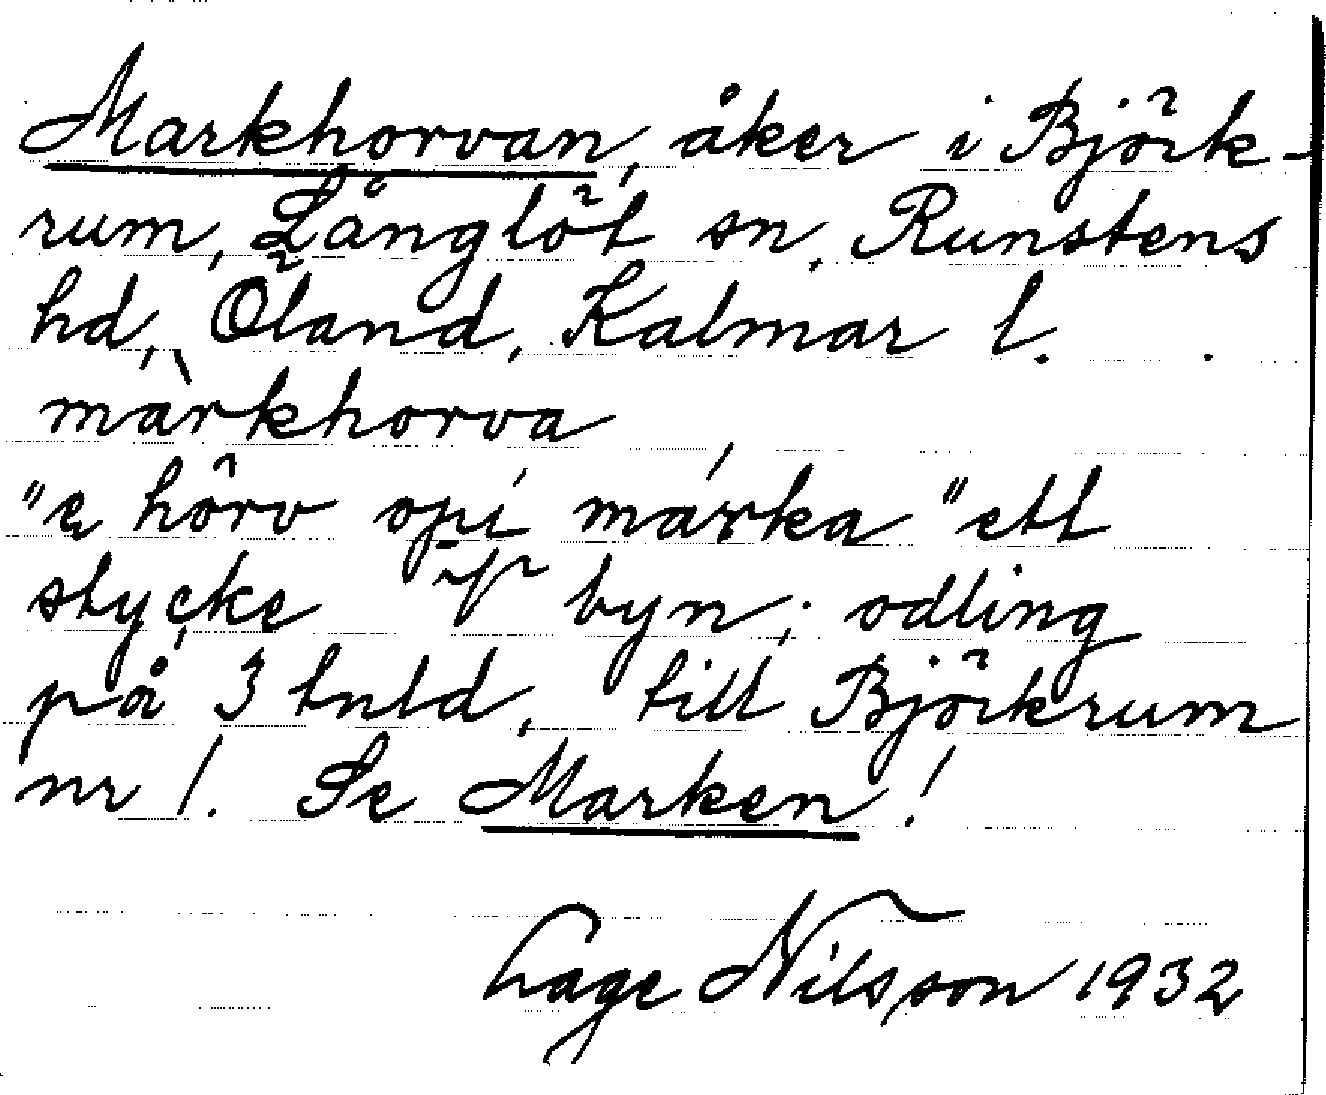 Markhorvan, åker i Björk-
rum, Långlöt sn. Runstens
hd, Öland, Kalmar l.
màrkhorva
"e hôrv opi márka" ett
stycke byn; odling
på 3 tnld, till Björkrum
nr 1. Se Marken!
Lage Nilsson 1932